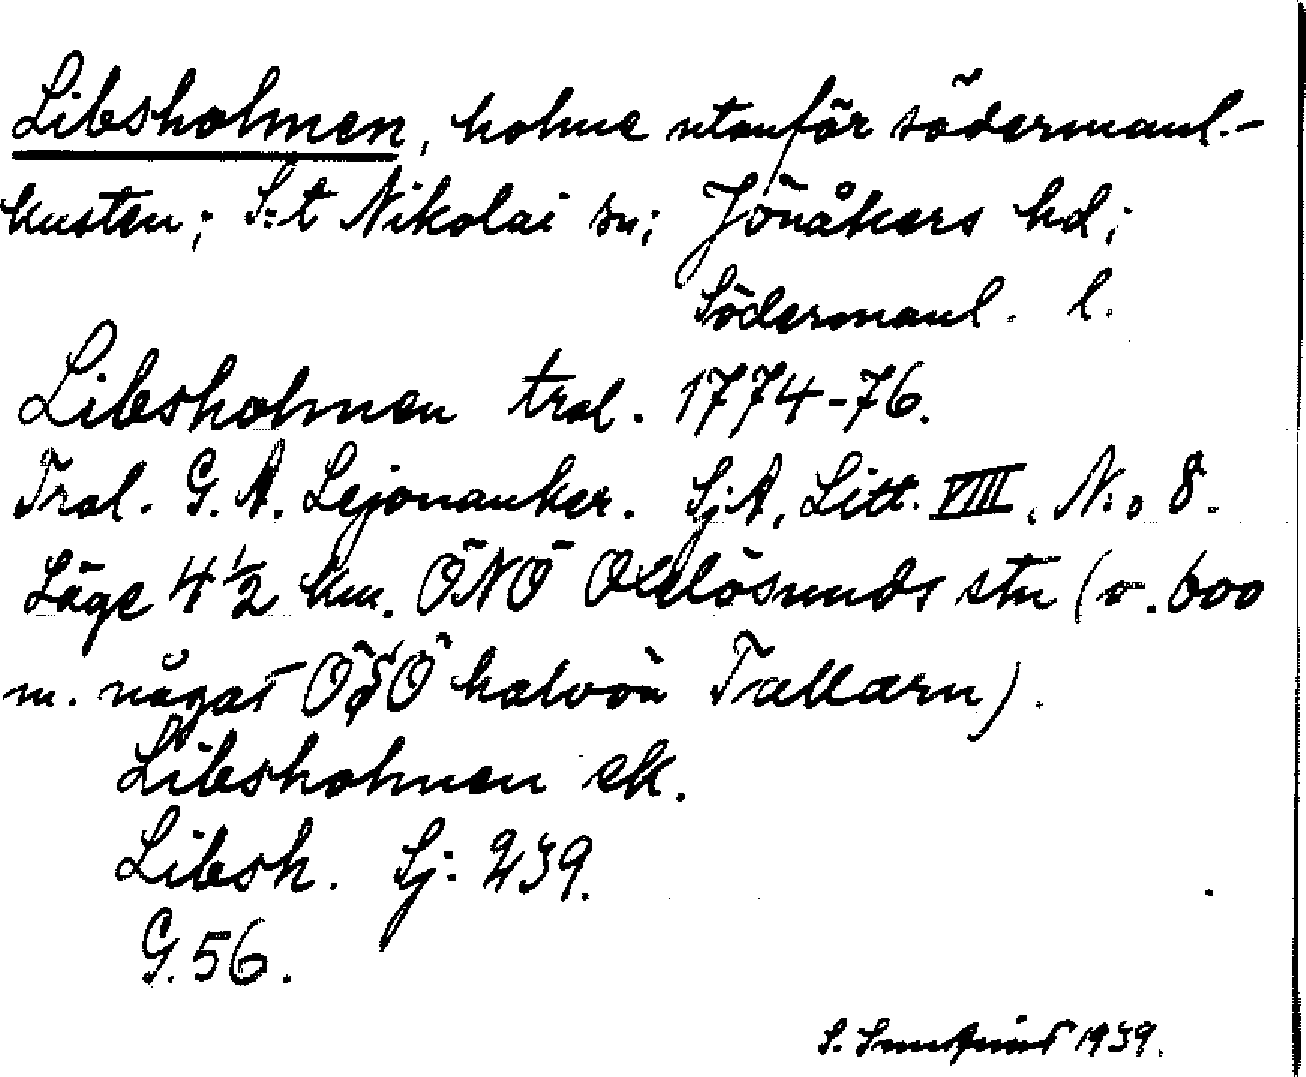 Libsholmen, holme utanför södermanl.-
kusten; S:t Nikolai sn; Jönåkers hd;
Södermanl. l.
Libsholmen tral. 1774-76.
Tral. G. A. Lejonanker. SjA, Litt. VIII, N:o 8.
Läge 4 ½ km. ÖNÖ Oxelösunds stn (o. 600
m. något ÖSÖ halvön Tallarn).
Libsholmen ek.
Libsh. Sj: 239.
G. 56.
S. 1939.